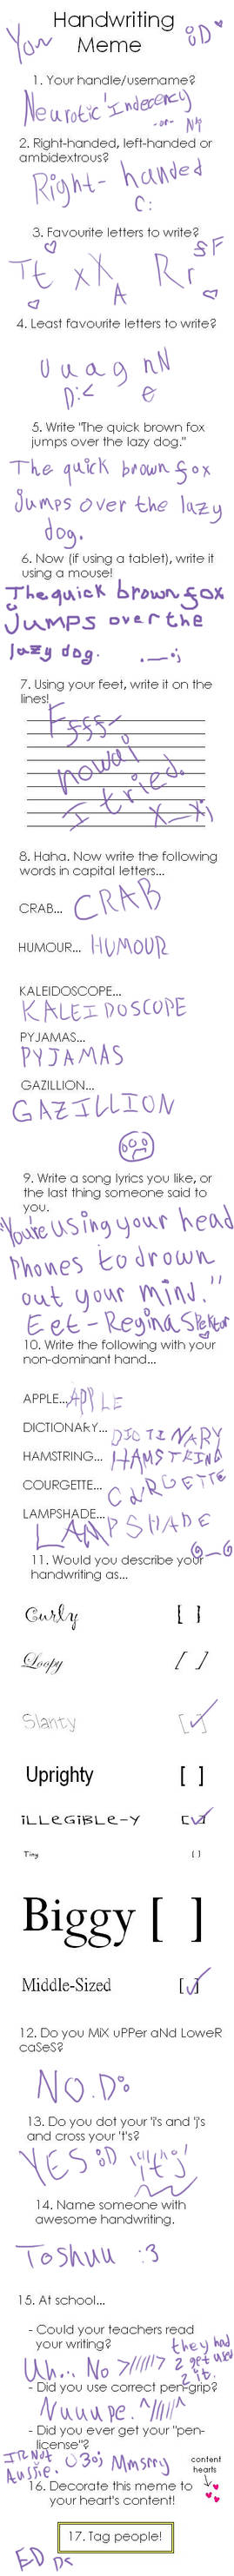 Your Handwriting :D
Meme
1. Your handle/username?
Neurotic Indecency
-or- NI
2. Right-handed, left-handed or
ambidextrous?
Right-handed
C:
3. Favourite letters to write?
Tt xX A Rr sF
4. Least favourite letters to write?
U u a g nN
D:< e
5. Write "The quick brown fox
jumps over the lazy dog."
The quick brown fox
jumps over the lazy
dog.
6. Now (if using a tablet), write it
using a mouse!
The quick brown fox
Jumps over the
lazy dog. ._.;
7. Using your feet, write it on the
lines!
Ffff-
nowai
I tried.
X_X;
8. Haha. Now write the following
words in capital letters...
CRAB... CRAB
HUMOUR... HUMOUR
KALEIDOSCOPE...
KALEIDOSCOPE
PYJAMAS...
PYJAMAS
GAZILLION...
GAZILLION
9. Write a song lyrics you like, or
the last thing someone said to
you.
"You're using your head
phones to drown
out your mind."
Eet - Regina Spektor
10. Write the following with your
non-dominant hand...
APPLE... APPLE
DICTIONARY... DICTINARY
HAMSTRING... HAMSTRING
COURGETTE... COURGETTE
LAMPSHADE...
LAMPSHADE
11. Would you describe your @_@
handwriting as...
Curly [ ]
Loopy [ ]
Slanty [✓]
Uprighty [ ]
iLLeGiBLe-Y [✓]
Tiny [ ]
Biggy [ ]
Middle-Sized [✓]
12. Do you MiX uPPer aNd LoweR
caSeS?
NO. D:
13. Do you dot your 'i's and 'j's
and cross your 't's?
YES :D itj
14. Name someone with
awesome handwriting.
Toshuu :3
15. At school...
- Could your teachers read
your writing?
Uh... No >/////> they had
2 get used
2 it.
- Did you use correct pen-grip?
Nuuupe. ^/////^
- Did you ever get your "pen-
license"?
I'R Not
Aussie. D8; Mmsrry
content
hearts
16. Decorate this meme to
your heart's content!
17. Tag people!